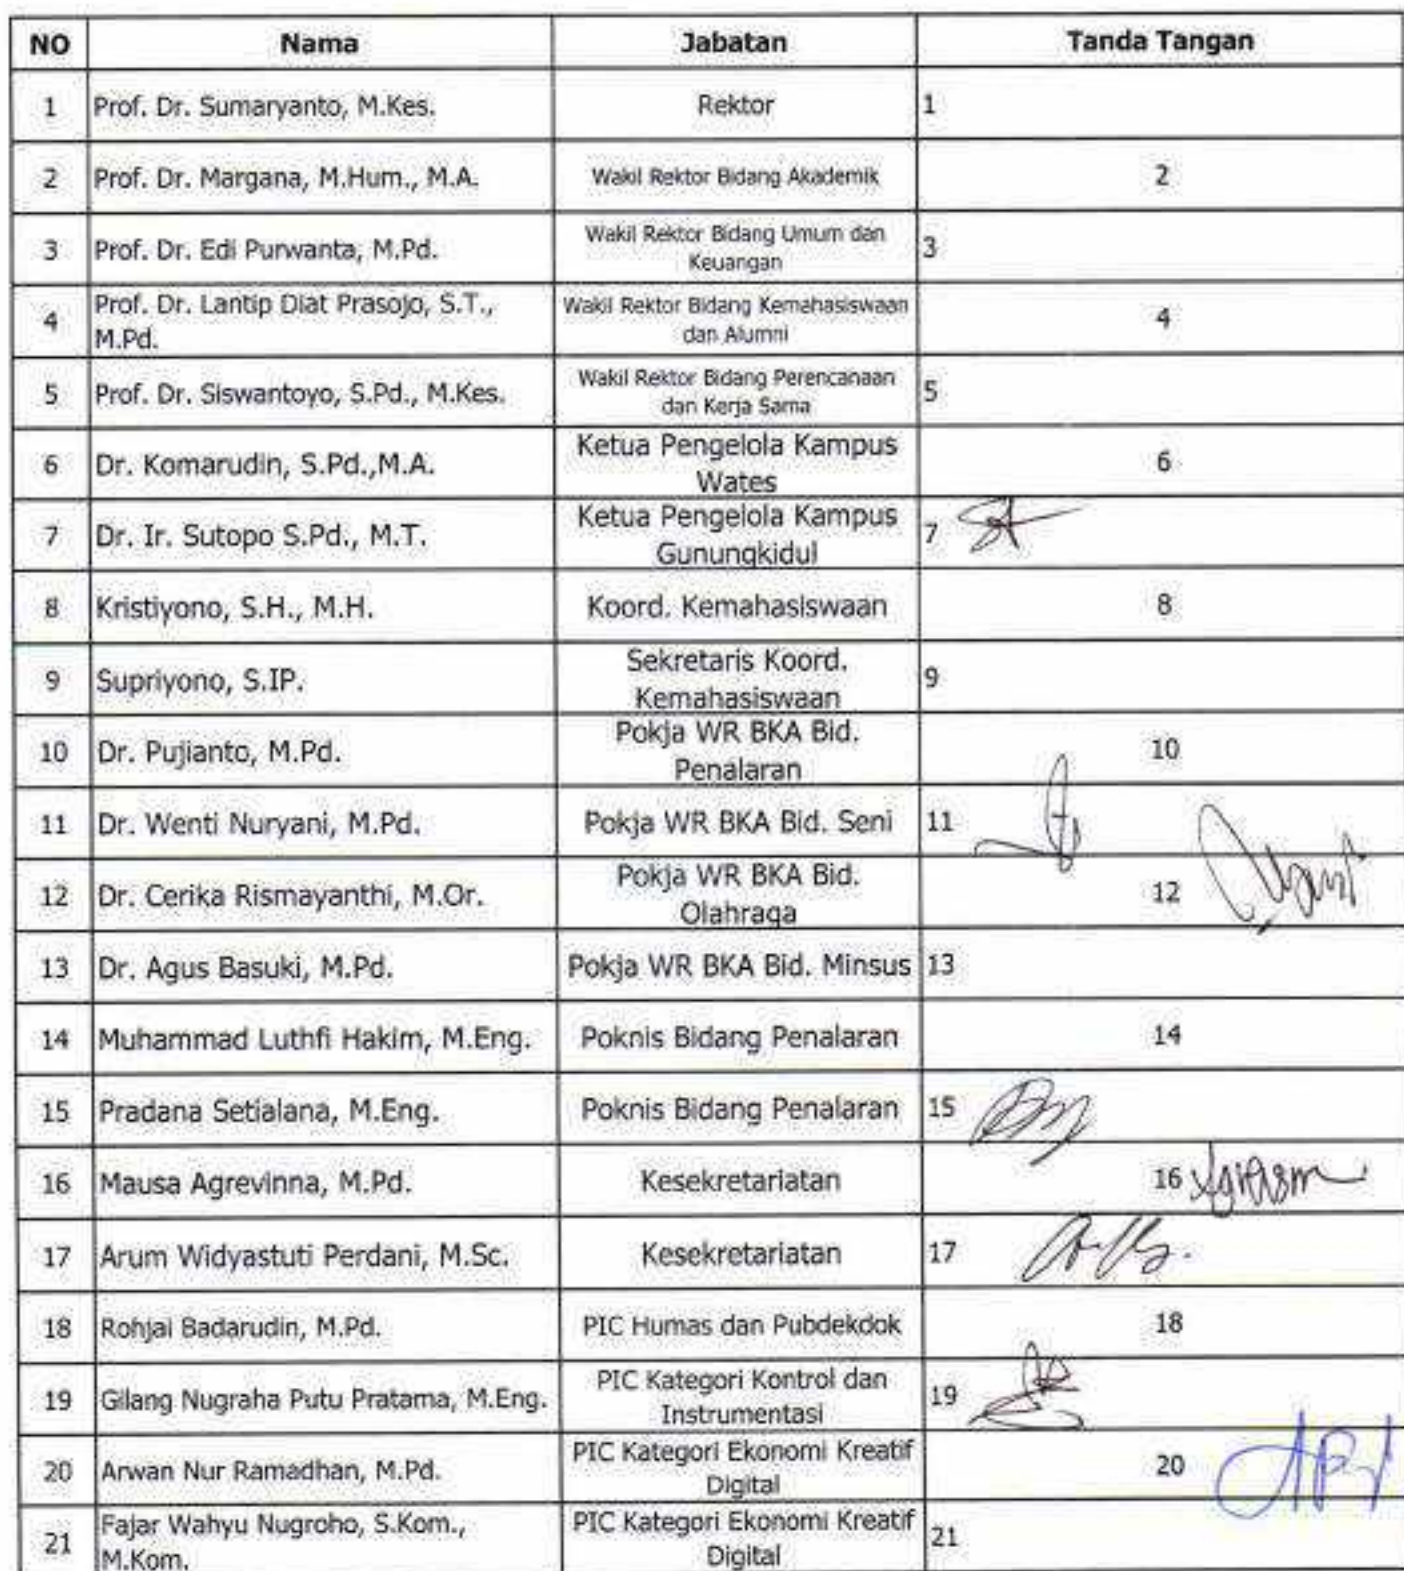 NO Nama Jabatan Tanda Tangan
1 Prof. Dr. Sumaryanto, M.Kes. Rektor 1
2 Prof. Dr. Margana, M.Hum., M.A. Wakil Rektor Bidang Akademik 2
3 Prof. Dr. Edi Purwanta, M.Pd. Wakil Rektor Bidang Umum dan
Keuangan 3
4 Prof. Dr. Lantip Diat Prasojo, S.T.,
M.Pd. Wakil Rektor Bidang Kemahasiswaan
dan Alumni 4
5 Prof. Dr. Siswantoyo, S.Pd., M.Kes. Wakil Rektor Bidang Perencanaan
dan Kerja Sama 5
6 Dr. Komarudin, S.Pd.,M.A. Ketua Pengelola Kampus
Wates 6
7 Dr. Ir. Sutopo S.Pd., M.T. Ketua Pengelola Kampus
Gunungkidul 7
8 Kristiyono, S.H., M.H. Koord. Kemahasiswaan 8
9 Supriyono, S.IP. Sekretaris Koord.
Kemahasiswaan 9
10 Dr. Pujianto, M.Pd. Pokja WR BKA Bid.
Penalaran 10
11 Dr. Wenti Nuryani, M.Pd. Pokja WR BKA Bid. Seni 11
12 Dr. Cerika Rismayanthi, M.Or. Pokja WR BKA Bid.
Olahraga 12
13 Dr. Agus Basuki, M.Pd. Pokja WR BKA Bid. Minsus 13
14 Muhammad Luthfi Hakim, M.Eng. Poknis Bidang Penalaran 14
15 Pradana Setialana, M.Eng. Poknis Bidang Penalaran 15
16 Mausa Agrevinna, M.Pd. Kesekretariatan 16
17 Arum Widyastuti Perdani, M.Sc. Kesekretariatan 17
18 Rohjai Badarudin, M.Pd. PIC Humas dan Pubdekdok 18
19 Gilang Nugraha Putu Pratama, M.Eng. PIC Kategori Kontrol dan
Instrumentasi 19
20 Arwan Nur Ramadhan, M.Pd. PIC Kategori Ekonomi Kreatif
Digital 20
21 Fajar Wahyu Nugroho, S.Kom.,
M.Kom. PIC Kategori Ekonomi Kreatif
Digital 21